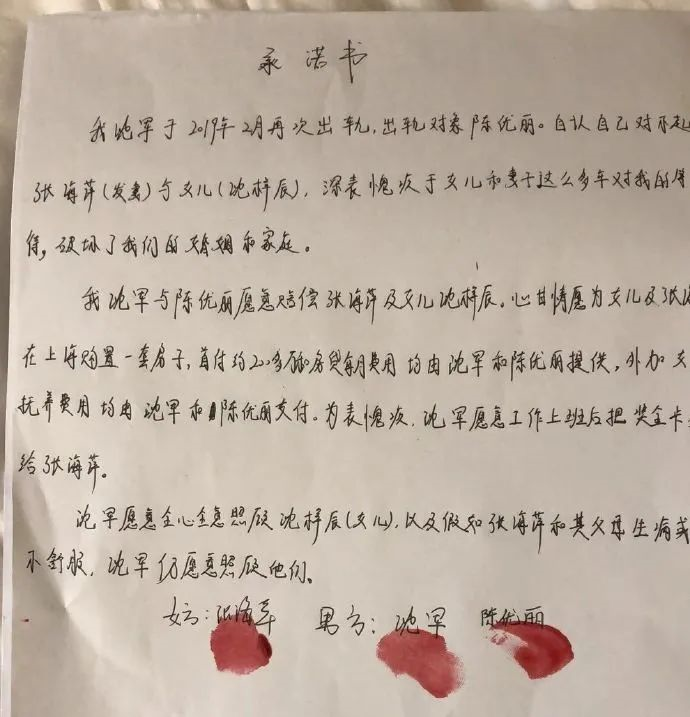 承诺书
我沈军于2019年2月再次出轨,出轨对象陈优丽。自认自己对不起
张海萍(发妻)与女儿(沈梓辰),深表愧疚于女儿和妻子这么多年对我的
待,破坏了我们的婚姻和家庭。
我沈军与陈优丽愿意赔偿张海萍及女儿沈梓辰。心甘情愿为女儿及张
在上海购置一套房子,首付约200多万和房贷每月费用均由沈军和陈优丽提供,外加女
抚养费用均由沈军和陈优丽支付。为表愧疚,沈军愿意工作上班后把奖金卡
给张海萍。
沈军愿意全心全意照顾沈梓辰(女儿),以及假如张海萍和其父母生病或
不舒服,沈军仍愿意照顾他们。
女方:张海萍 男方:沈军 陈优丽